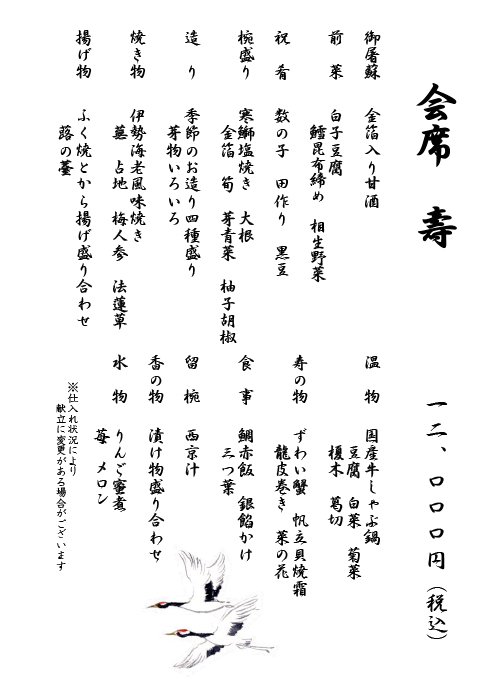 会席　寿
一二、〇〇〇円（税込）
御屠蘇　金箔入り甘酒
前菜　白子豆腐
鱈昆布締め　相生野菜
祝肴　数の子　田作り　黒豆
椀盛り　寒鰤塩焼き　大根
金箔　筍　芽青菜　柚子胡椒
造り　季節のお造り四種盛り
芽物いろいろ
焼き物　伊勢海老風味焼き
占地　梅人参　法蓮草
揚げ物　ふく焼とから揚げ盛り合わせ
蕗の薹
温物　国産牛しゃぶ鍋
豆腐　白菜　菊菜
榎木　葛切
寿の物　ずわい蟹　帆立貝焼霜
龍皮巻き　菜の花
食事　鯛赤飯　銀餡かけ
三つ葉
留椀　西京汁
香の物　漬け物盛り合わせ
水物　りんご蜜煮
苺　メロン
※仕入れ状況により
献立に変更がある場合がございます